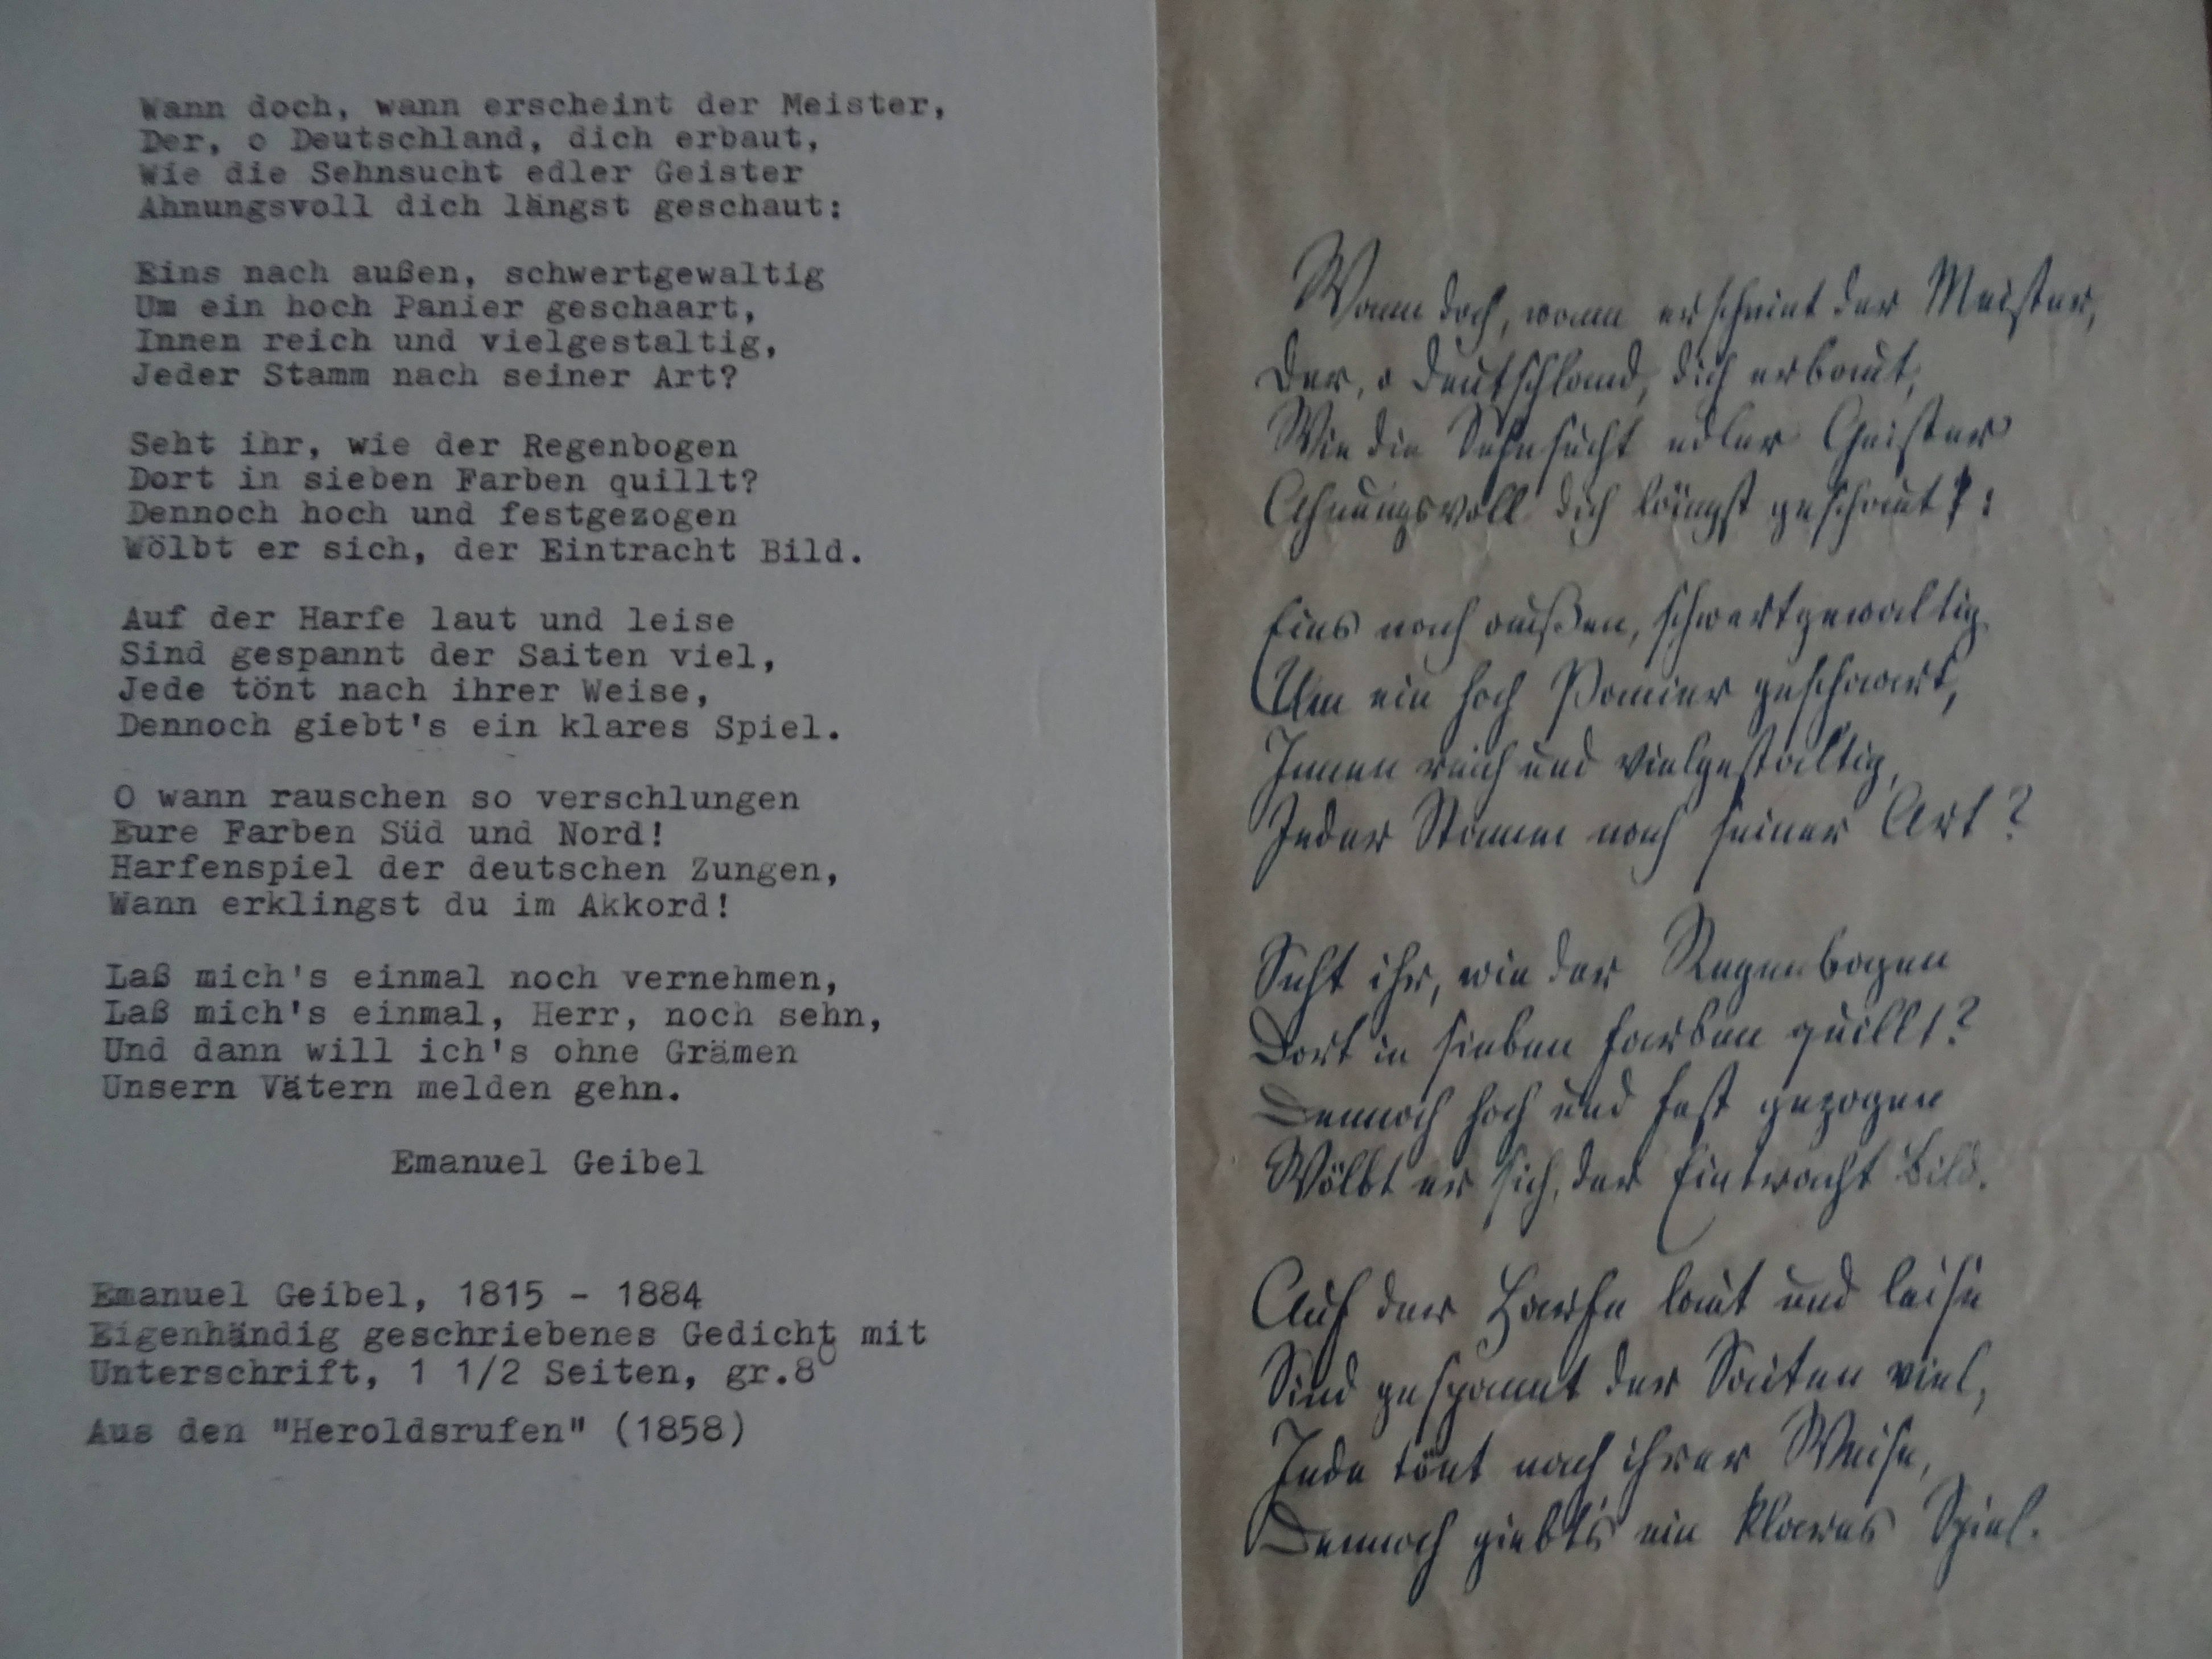 Wann doch, wann erscheint der Meister,
Der, o Deutschland, dich erbaut,
Wie die Sehnsucht edler Geister
Ahnungsvoll dich längst geschaut:
Eins nach außen, schwertgewaltig
Um ein hoch Panier geschaart,
Innen reich und vielgestaltig,
Jeder Stamm nach seiner Art?
Seht ihr, wie der Regenbogen
Dort in sieben Farben quillt?
Dennoch hoch und festgezogen
Wölbt er sich, der Eintracht Bild.
Auf der Harfe laut und leise
Sind gespannt der Saiten viel,
Jede tönt nach ihrer Weise,
Dennoch giebt's ein klares Spiel.
O wann rauschen so verschlungen
Eure Farben Süd und Nord!
Harfenspiel der deutschen Zungen,
Wann erklingst du im Akkord!
Laß mich's einmal noch vernehmen,
Laß mich's einmal, Herr, noch sehn,
Und dann will ich's ohne Grämen
Unsern Vätern melden gehn.
Emanuel Geibel
Emanuel Geibel, 1815 - 1884
Eigenhändig geschriebenes Gedicht mit
Unterschrift, 1 1/2 Seiten, gr.8°
Aus den "Heroldsrufen" (1858)
Wann doch, wann erscheint der Meister,
Der, o Deutschland, dich erbaut,
Wie die Sehnsucht edler Geister
Ahnungsvoll dich längst geschaut:
Eins nach außen, schwertgewaltig
Um ein hoch Panier geschaart,
Innen reich und vielgestaltig,
Jeder Stamm nach seiner Art?
Seht ihr, wie der Regenbogen
Dort in sieben Farben quillt?
Dennoch hoch und fest gezogen
Wölbt er sich, der Eintracht Bild.
Auf der Harfe laut und leise
Sind gespannt der Saiten viel,
Jede tönt nach ihrer Weise,
Dennoch giebt's ein klares Spiel.